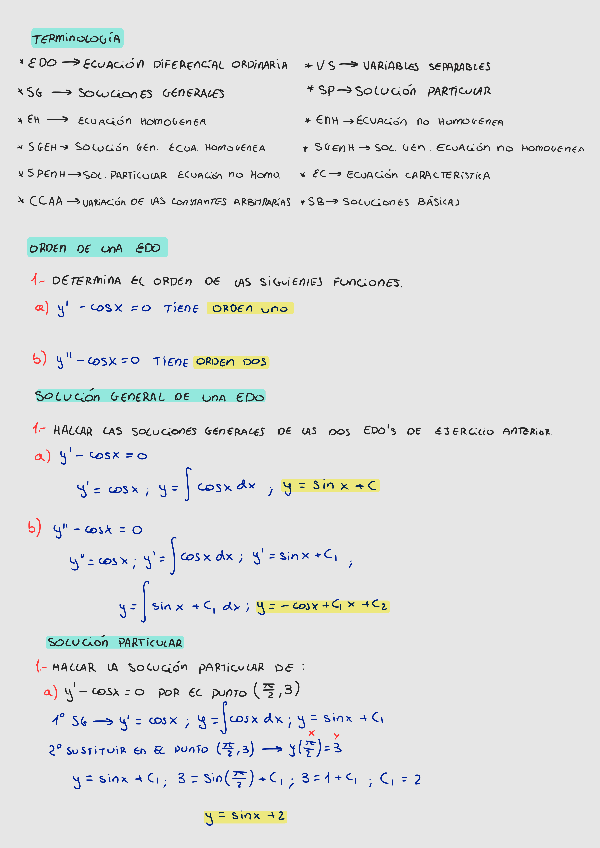 TERMINOLOGÍA
* EDO → ECUACIÓN DIFERENCIAL ORDINARIA * VS → VARIABLES SEPARABLES
* SG → SOLUCIONES GENERALES * SP → SOLUCIÓN PARTICULAR
* EH → ECUACIÓN HOMOGENEA * ENH → ECUACIÓN NO HOMOGENEA
* SGEH → SOLUCIÓN GEN. ECUA. HOMOGENEA * SGENH → SOL. GEN. ECUACIÓN NO HOMOGENEA
* SPENH → SOL. PARTICULAR ECUACIÓN NO HOMO. * EC → ECUACIÓN CARACTERÍSTICA
* CCAA → VARIACIÓN DE LAS CONSTANTES ARBITRARIAS * SB → SOLUCIONES BÁSICAS
ORDEN DE UNA EDO
1.- DETERMINA EL ORDEN DE LAS SIGUIENTES FUNCIONES.
a) y' - cosx = 0 TIENE ORDEN UNO
b) y'' - cosx = 0 TIENE ORDEN DOS
SOLUCIÓN GENERAL DE UNA EDO
1.- HALLAR LAS SOLUCIONES GENERALES DE LAS DOS EDO'S DE EJERCICIO ANTERIOR.
a) y' - cosx = 0
y' = cosx ; y = ∫ cosx dx ; y = sin x + C
b) y'' - cosx = 0
y'' = cosx ; y' = ∫ cosx dx ; y' = sinx + C₁ ;
y = ∫ sinx + C₁ dx ; y = -cosx + C₁ x + C₂
SOLUCIÓN PARTICULAR
1.- HALLAR LA SOLUCIÓN PARTICULAR DE :
a) y' - cosx = 0 POR EL PUNTO (π/2, 3)
1º SG → y' = cosx ; y = ∫ cosx dx ; y = sinx + C₁
x y
2º SUSTITUIR EN EL PUNTO (π/2, 3) → y(π/2) = 3
y = sinx + C₁ ; 3 = sin(π/2) + C₁ ; 3 = 1 + C₁ ; C₁ = 2
y = sinx + 2